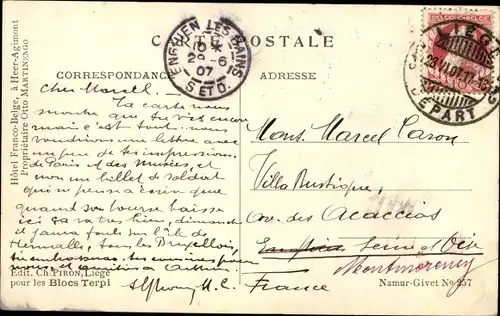 CARTE POSTALE
CORRESPONDANCE
ADRESSE
Hôtel Franco-Belge, à Heer-Agimont
Propriétaire Otto MARTINENGO
ENGHIEN LES BAINS
29-6
07
S ET O.
BELGIQUE-BELGIË
LIÈGE
DÉPART
Cher Marcel.
La carte nous
montre que tu vis encore
mais c'est tout. nous
voudrions une lettre avec
un peu de tes impressions
de Paris et des Musées et
non un billet de soldat
quand son bourse baisse
ici ça va très bien, dimanche
il y aura foule sur l'île de
tous les Bruxellois
Mons. Marcel Caron
Villa Rustique,
Av. des Acacias
Enghien Seine et Oise
Montmorency
France
Edit. Ch. PIRON, Liège
pour les Blocs Terpi
Namur-Givet No 257